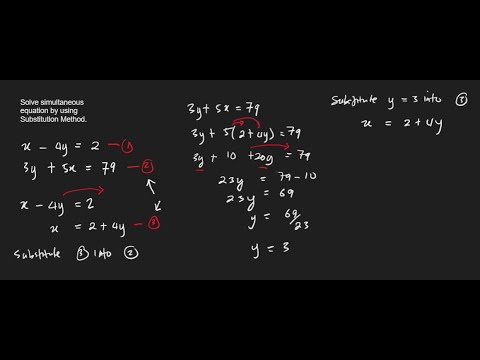 Solve simultaneous
equation by using
Substitution Method.
x - 4y = 2 — ①
3y + 5x = 79 — ②
x - 4y = 2
x = 2 + 4y — ③
Substitute ③ into ②
3y + 5x = 79
3y + 5(2+4y) = 79
3y + 10 + 20y = 79
23y = 79 - 10
23y = 69
y = 69/23
y = 3
Substitute y = 3 into ③
x = 2 + 4y